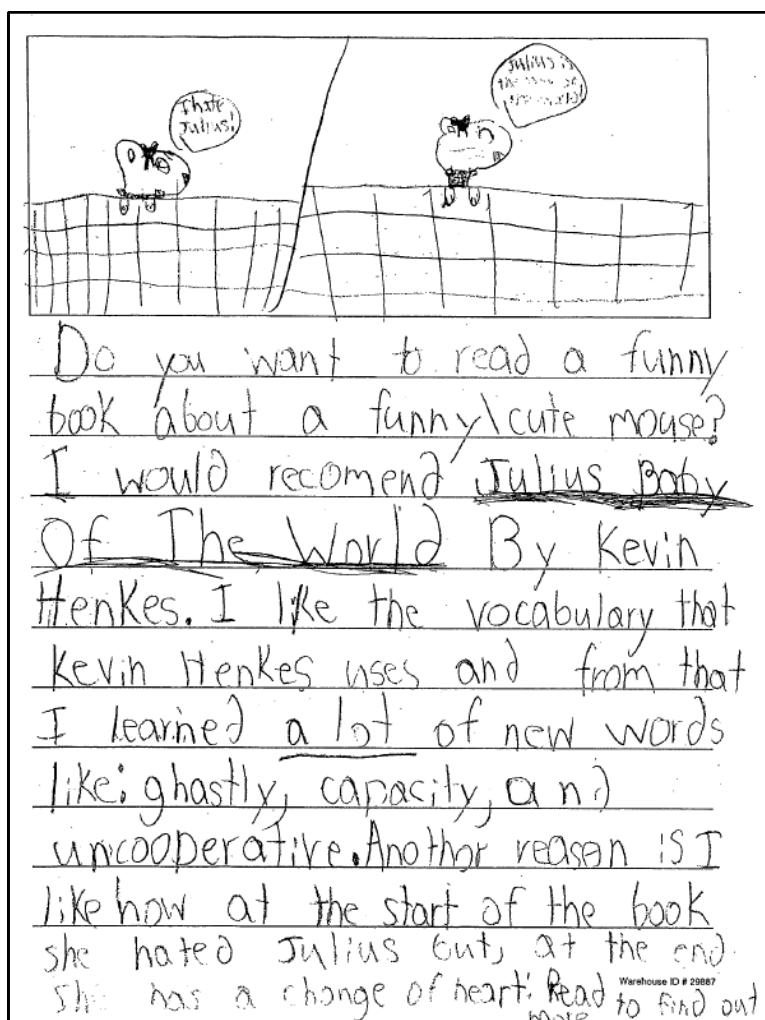 I hate
Julius!
Julius is
Do you want to read a funny
book about a funny\cute mouse?
I would recomend Julius Baby
Of The World By Kevin
Henkes. I like the vocabulary that
Kevin Henkes uses and from that
I learned a lot of new words
like: ghastly, capacity, and
uncooperative. Another reason is I
like how at the start of the book
she hated Julius but, at the end
she has a change of heart! Read to find out
more
Warehouse ID # 29887